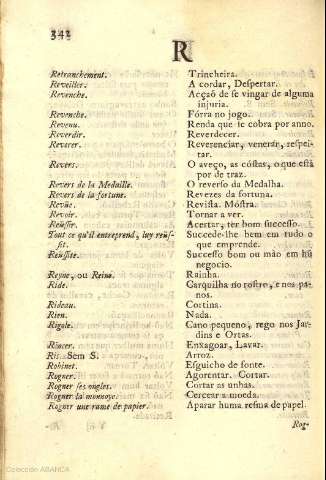 342
R
Retranchement. Trincheira.
Reveiller. A cordar, Despertar.
Revenche. Acçaõ de se vingar de alguma
injuria.
Revenche. Fórra no jogo.
Revenu. Renda que se cobra por anno.
Reverdir. Reverdecer.
Reverer. Reverenciar, venerar, respei-
tar.
Revers. O aveço, as cóstas, o que està
por de traz.
Revers de la Medaille. O reverso da Medalha.
Revers de la fortune. Revezes da fortuna.
Revûe. Revista. Móstra.
Revoir. Tornar a ver.
Reüssir. Acertar, ter bom successo.
Tout ce qu'il entreprend, luy reüs-
sit. Succede-lhe bem em tudo o
que emprende.
Reüssite. Successo bom ou mào em hũ
negocio.
Reyne, ou Reine. Rainha.
Ride. Carquilha no rostro, e nos pa-
nos.
Rideau. Cortina.
Rien. Nada.
Rigole. Cano pequeno, rego nos Jar-
dins e Ortas.
Rincer. Enxagoar, Lavar.
Ris Sem S. Arroz.
Robinet. Esguicho de fonte.
Rogner. Agorentar. Cortar.
Rogner ses ongles. Cortar as unhas.
Rogner la monnoye. Cercear a moeda.
Rogner une rame de papier. Aparar huma resma de papel.
Rog-
Colección ABANCA